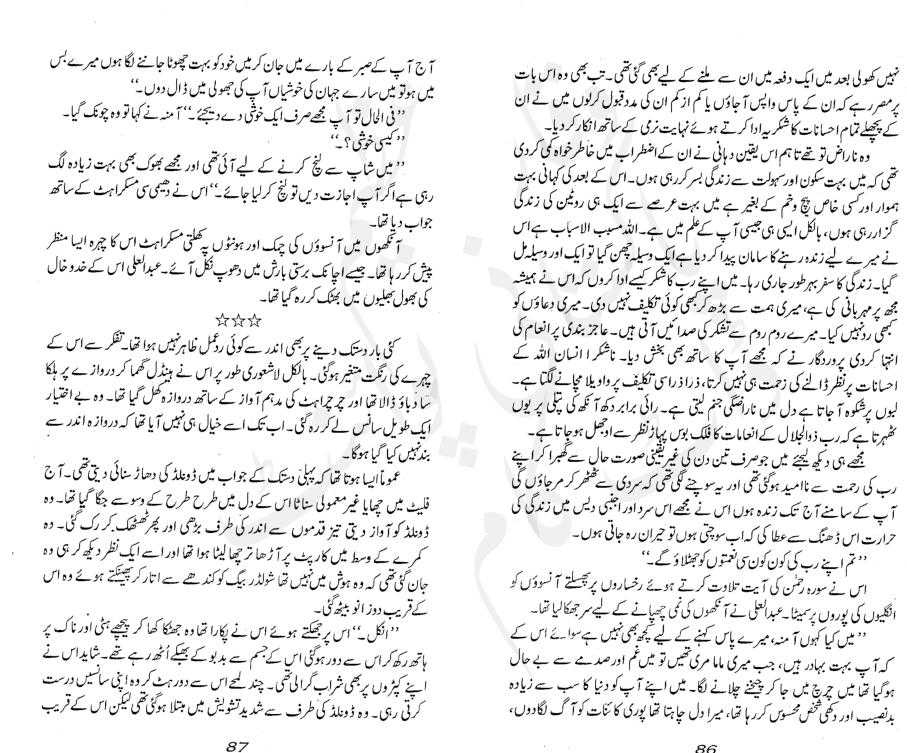 نہیں کھولی بعد میں ایک دفعہ میں ان سے ملنے کے لیے بھی گئی تھی۔ تب بھی وہ اس بات
پر مصر رہے کہ ان کے پاس واپس آ جاؤں یا کم از کم ان کی مدد قبول کرلوں میں نے ان
کے پچھلے تمام احسانات کا شکریہ ادا کرتے ہوئے نہایت نرمی کے ساتھ انکار کر دیا۔
وہ ناراض تو تھے تاہم اس یقین دہانی نے ان کے اضطراب میں خاطر خواہ کمی کردی
تھی کہ میں بہت سکون اور سہولت سے زندگی بسر کر رہی ہوں۔ اس کے بعد کی کہانی بہت
ہموار اور کسی خاص پیچ و خم کے بغیر ہے میں بہت عرصے سے ایک ہی روٹین کی زندگی
گزار رہی ہوں، بالکل ایسی ہی جیسی آپ کے علم میں ہے۔ اللہ مسبب الاسباب ہے اس
نے میرے لیے زندہ رہنے کا سامان پیدا کر دیا ہے ایک وسیلہ چھن گیا تو ایک اور وسیلہ مل
گیا۔ زندگی کا سفر بہر طور جاری رہا۔ میں اپنے رب کا شکر کیسے ادا کروں کہ اس نے ہمیشہ
مجھ پر مہربانی کی ہے، میری ہمت سے بڑھ کر کبھی کوئی تکلیف نہیں دی۔ میری دعاؤں کو
کبھی رد نہیں کیا۔ میرے روم روم سے تشکر کی صدائیں آتی ہیں۔ عاجز بندی پر انعام کی
انتہا کردی پروردگار نے کہ مجھے آپ کا ساتھ بھی بخش دیا۔ ناشکرا انسان اللہ کے
احسانات پر نظر ڈالنے کی زحمت ہی نہیں کرتا، ذرا ذراسی تکلیف پر واویلا مچانے لگتا ہے۔
لبوں پر شکوہ آ جاتا ہے دل میں ناراضگی جنم لیتی ہے۔ رائی برابر دکھ آنکھ کی پتلی پر یوں
ٹھہرتا ہے کہ رب ذوالجلال کے انعامات کا فلک بوس پہاڑ نظر سے اوجھل ہو جاتا ہے۔
مجھے ہی دیکھ لیجئے میں جو صرف تین دن کی غیر یقینی صورت حال سے گھبرا کر اپنے
رب کی رحمت سے نا امید ہوگئی تھی اور یہ سوچنے لگی تھی کہ سردی سے ٹھٹھر کر مر جاؤں گی
آپ کے سامنے آج تک زندہ ہوں اس نے مجھے اس سرد اور اجنبی دیس میں زندگی کی
حرارت اس ڈھنگ سے عطا کی کہ اب سوچتی ہوں تو حیران رہ جاتی ہوں۔
”تم اپنے رب کی کون کون سی نعمتوں کو جھٹلاؤ گے۔“
اس نے سورہ رحمٰن کی آیت تلاوت کرتے ہوئے رخساروں پر پھسلتے آنسوؤں کو
انگلیوں کی پوروں پر سمیٹا۔ عبدالعلی نے آنکھوں کی نمی چھپانے کے لیے سر جھکا لیا تھا۔
”میں کیا کہوں آمنہ، میرے پاس کہنے کے لیے کچھ بھی نہیں ہے سوائے اس کے
کہ آپ بہت بہادر ہیں، جب میری ماما مری تھیں تو میں غم اور صدمے سے بے حال
ہو گیا تھا میں چرچ میں جا کر چیخنے چلانے لگا۔ میں اپنے آپ کو دنیا کا سب سے زیادہ
بدنصیب اور دکھی شخص محسوس کر رہا تھا، میرا دل چاہتا تھا پوری کائنات کو آگ لگا دوں،
86
آج آپ کے صبر کے بارے میں جان کر میں خود کو بہت چھوٹا جاننے لگا ہوں میرے بس
میں ہو تو میں سارے جہان کی خوشیاں آپ کی جھولی میں ڈال دوں۔“
”فی الحال تو آپ مجھے صرف ایک خوشی دے دیجئے۔“ آمنہ نے کہا تو وہ چونک گیا۔
”کیسی خوشی؟۔“
”میں شاپ سے لنچ کرنے کے لیے آئی تھی اور مجھے بھوک بھی بہت زیادہ لگ
رہی ہے اگر آپ اجازت دیں تو لنچ کر لیا جائے۔“ اس نے دھیمی سی مسکراہٹ کے ساتھ
جواب دیا تھا۔
آنکھوں میں آنسوؤں کی چمک اور ہونٹوں پہ کھلتی مسکراہٹ اس کا چہرہ ایسا منظر
پیش کر رہا تھا۔ جیسے اچانک برستی بارش میں دھوپ نکل آئے۔ عبدالعلی اس کے خدوخال
کی بھول بھلیوں میں بھٹک کر رہ گیا تھا۔
☆☆☆
کئی بار دستک دینے پر بھی اندر سے کوئی ردعمل ظاہر نہیں ہوا تھا۔ تفکر سے اس کے
چہرے کی رنگت متغیر ہوگئی۔ بالکل لاشعوری طور پر اس نے ہینڈل گھما کر دروازے پر ہلکا
سا دباؤ ڈالا تھا اور چرچراہٹ کی مدہم آواز کے ساتھ دروازہ کھل گیا تھا۔ وہ بے اختیار
ایک طویل سانس لے کر رہ گئی۔ اب تک اسے خیال ہی نہیں آیا تھا کہ دروازہ اندر سے
بند نہیں کیا گیا ہوگا۔
عموماً ایسا ہوتا تھا کہ پہلی دستک کے جواب میں ڈونلڈ کی دھاڑ سنائی دیتی تھی۔ آج
فلیٹ میں چھایا غیر معمولی سناٹا اس کے دل میں طرح طرح کے وسوسے جگا گیا تھا۔ وہ
ڈونلڈ کو آواز دیتی تیز قدموں سے اندر کی طرف بڑھی اور پھر ٹھٹھک کر رک گئی۔ وہ
کمرے کے وسط میں کارپٹ پر آڑھا ترچھا لیٹا ہوا تھا اور اسے ایک نظر دیکھ کر ہی وہ
جان گئی تھی کہ وہ ہوش میں نہیں تھا شولڈر بیگ کو کندھے سے اتار کر پھینکتے ہوئے وہ اس
کے قریب دوزانو بیٹھ گئی۔
”انکل۔“ اس پر جھکتے ہوئے اس نے پکارا تھا وہ جھٹکا کھا کر پیچھے ہٹی اور ناک پر
ہاتھ رکھ کر اس سے دور ہوگئی اس کے جسم سے بدبو کے بھبکے اُٹھ رہے تھے۔ شاید اس نے
اپنے کپڑوں پر بھی شراب گرالی تھی۔ چند لمحے اس سے دور ہٹ کر وہ اپنی سانسیں درست
کرتی رہی۔ وہ ڈونلڈ کی طرف سے شدید تشویش میں مبتلا ہوگئی تھی لیکن اس کے قریب
87